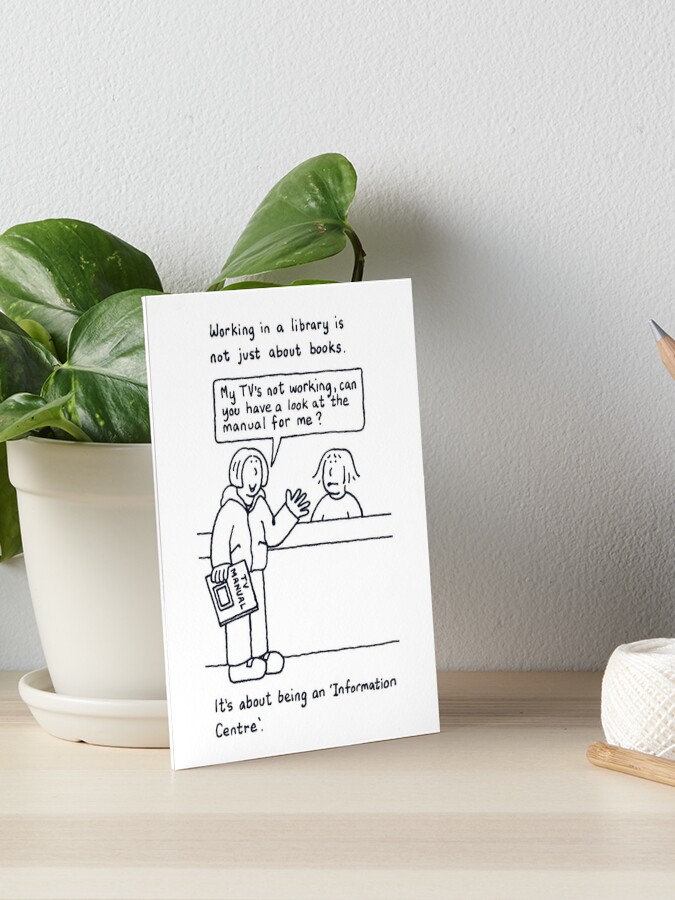 Working in a library is
not just about books.
My TV's not working, can
you have a look at the
manual for me?
TV
MANUAL
It's about being an 'Information
Centre'.